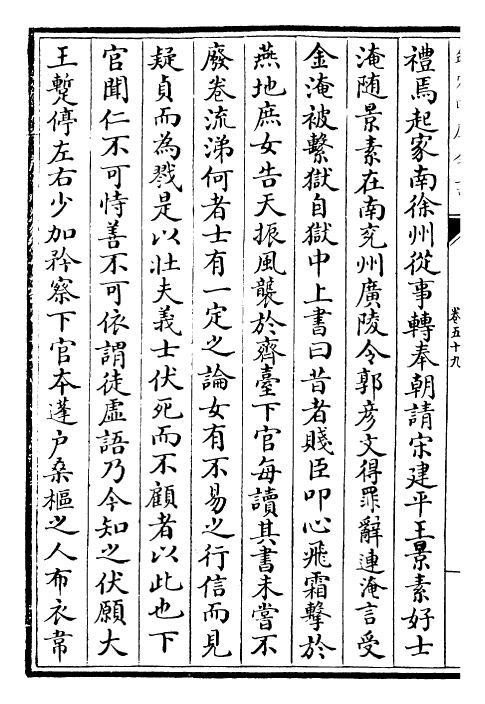 禮焉起家南徐州從事轉奉朝請宋建平王景素好士
淹随景素在南兖州廣陵令郭彦文得罪辭連淹言受
金淹被繫獄自獄中上書曰昔者賤臣叩心飛霜擊於
燕地庶女告天振風襲於齊臺下官每讀其書未嘗不
廢卷流涕何者士有一定之論女有不易之行信而見
疑貞而為戮是以壯夫義士伏死而不顧者以此也下
官聞仁不可恃善不可依謂徒虚語乃今知之伏願大
王蹔停左右少加矜察下官本蓬户桑樞之人布衣韋
卷五十九